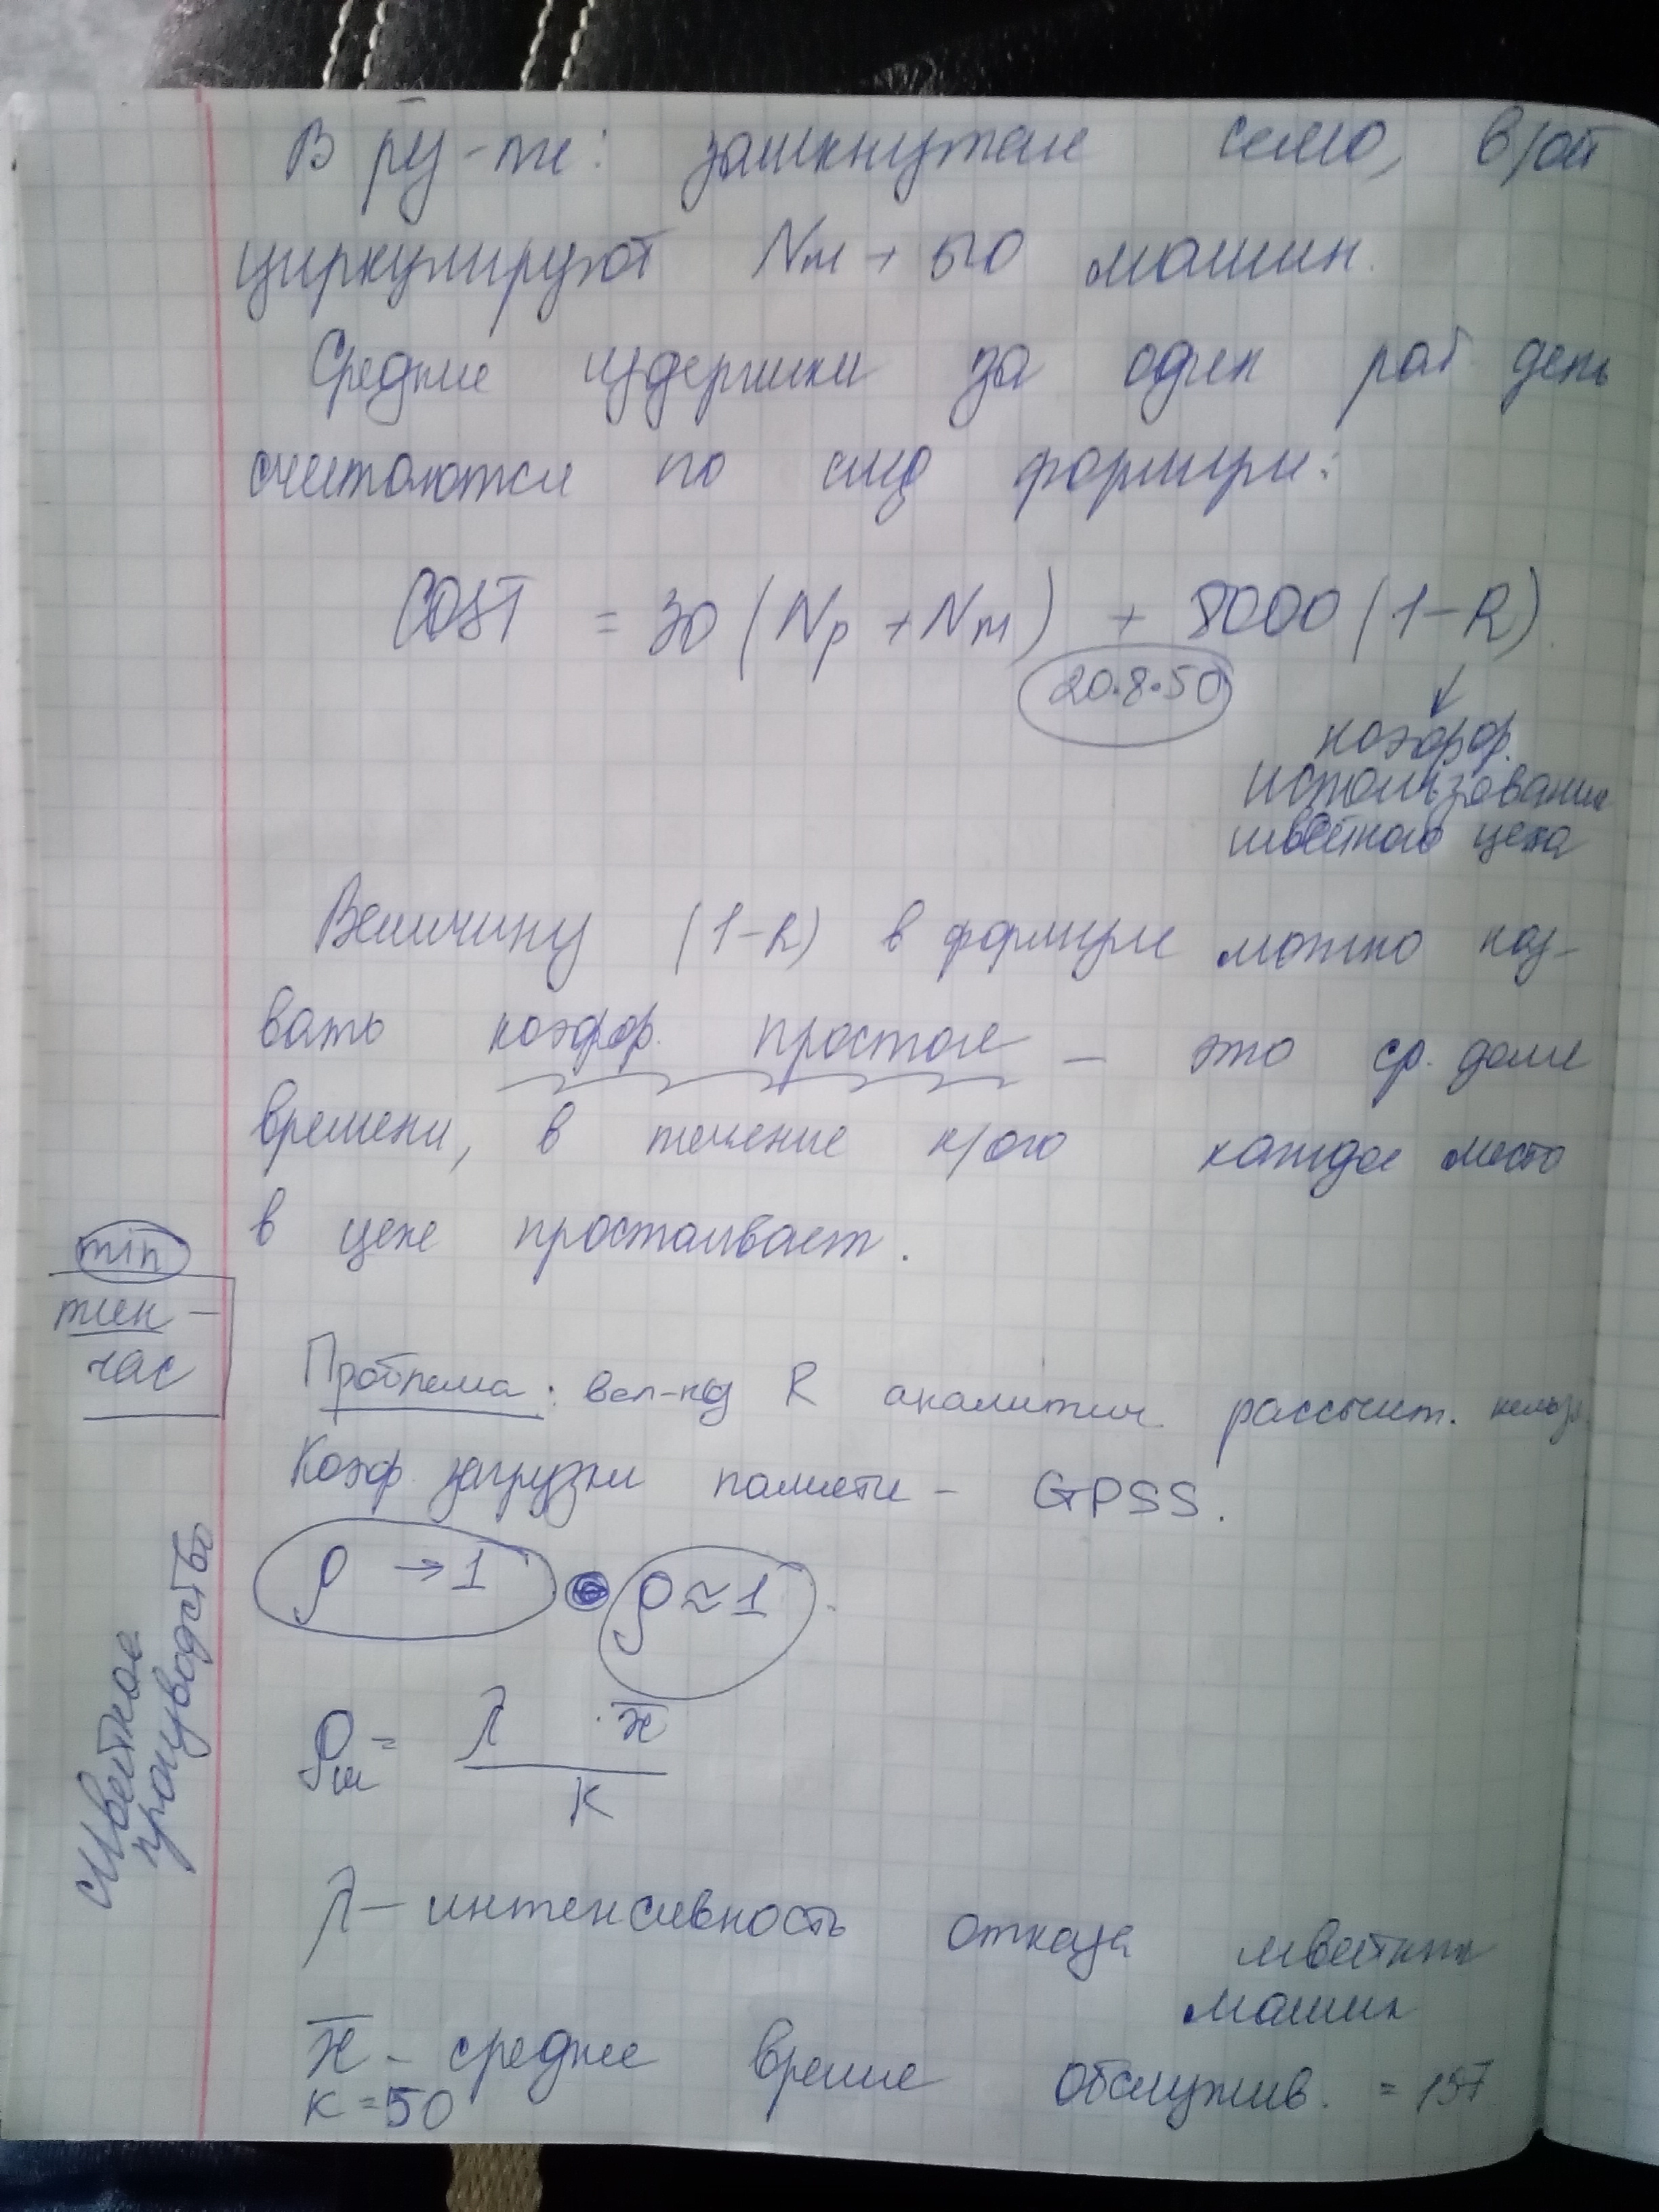 В рез-те: замкнутая семо, в/ой
циркулируют Nм + 50 машин.
Средние издержки за один раб день
считаются по след формуле:
COST = 30 (Np + Nm) + 8000 (1-R).
20·8·50
коэфф.
использования
швейного цеха
Величину (1-R) в формуле можно наз-
вать коэфф. простоя – это ср. доля
времени, в течение к/ого каждое место
в цехе простаивает.
min
час
Проблема: вел-ну R аналитич. рассчит. нельзя.
Коэф. загрузки памяти – GPSS.
ρ → 1 ρ ≈ 1
Швейное
производство
ρш = λ · x̄ / K
λ – интенсивность отказа швейных
машин
x̄ – среднее время обслужив. = 157
K = 50